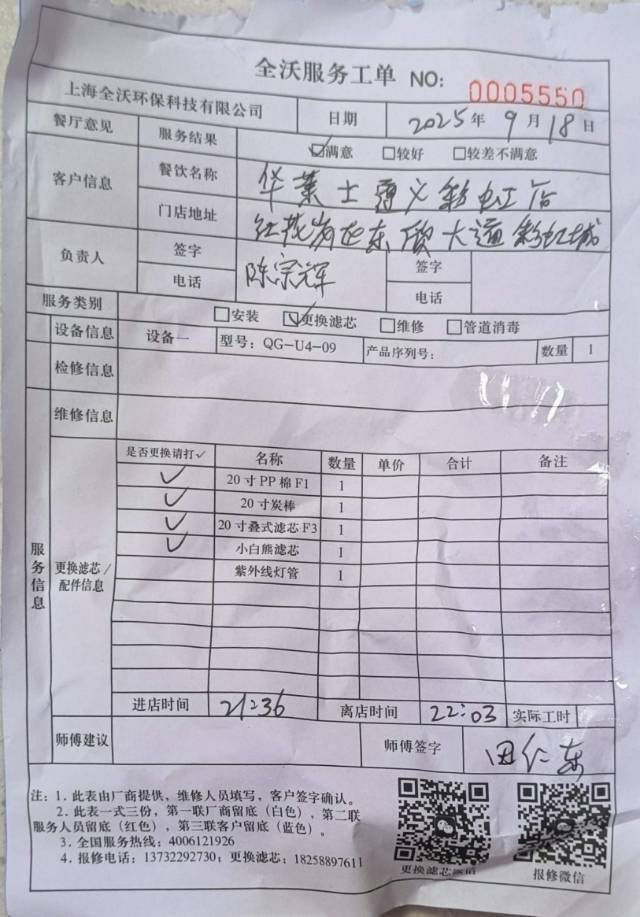 全沃服务工单 NO: 0005550
上海全沃环保科技有限公司 日期 2025年9月18日
餐厅意见 服务结果 ☑满意 □较好 □较差不满意
客户信息 餐饮名称 华莱士遵义彩虹店
门店地址 红花岗区东欣大道彩虹城
负责人 签字 陈宗辉 签字
电话 电话
服务类别 □安装 ☑更换滤芯 □维修 □管道消毒
服务信息
设备信息 设备一 型号：QG-U4-09 产品序列号： 数量 1
检修信息
维修信息
更换滤芯／配件信息
是否更换请打✓ 名称 数量 单价 合计 备注
✓ 20寸PP棉F1 1
✓ 20寸炭棒 1
✓ 20寸叠式滤芯F3 1
✓ 小白熊滤芯 1
紫外线灯管 1
进店时间 21:36 离店时间 22:03 实际工时
师傅建议 师傅签字 田仁东
注：1．此表由厂商提供，维修人员填写，客户签字确认。
2．此表一式三份，第一联厂商留底（白色），第二联
服务人员留底（红色），第三联客户留底（蓝色）。
3．全国服务热线：4006121926
4．报修电话：13732292730；更换滤芯：18258897611
更换滤芯微信 报修微信